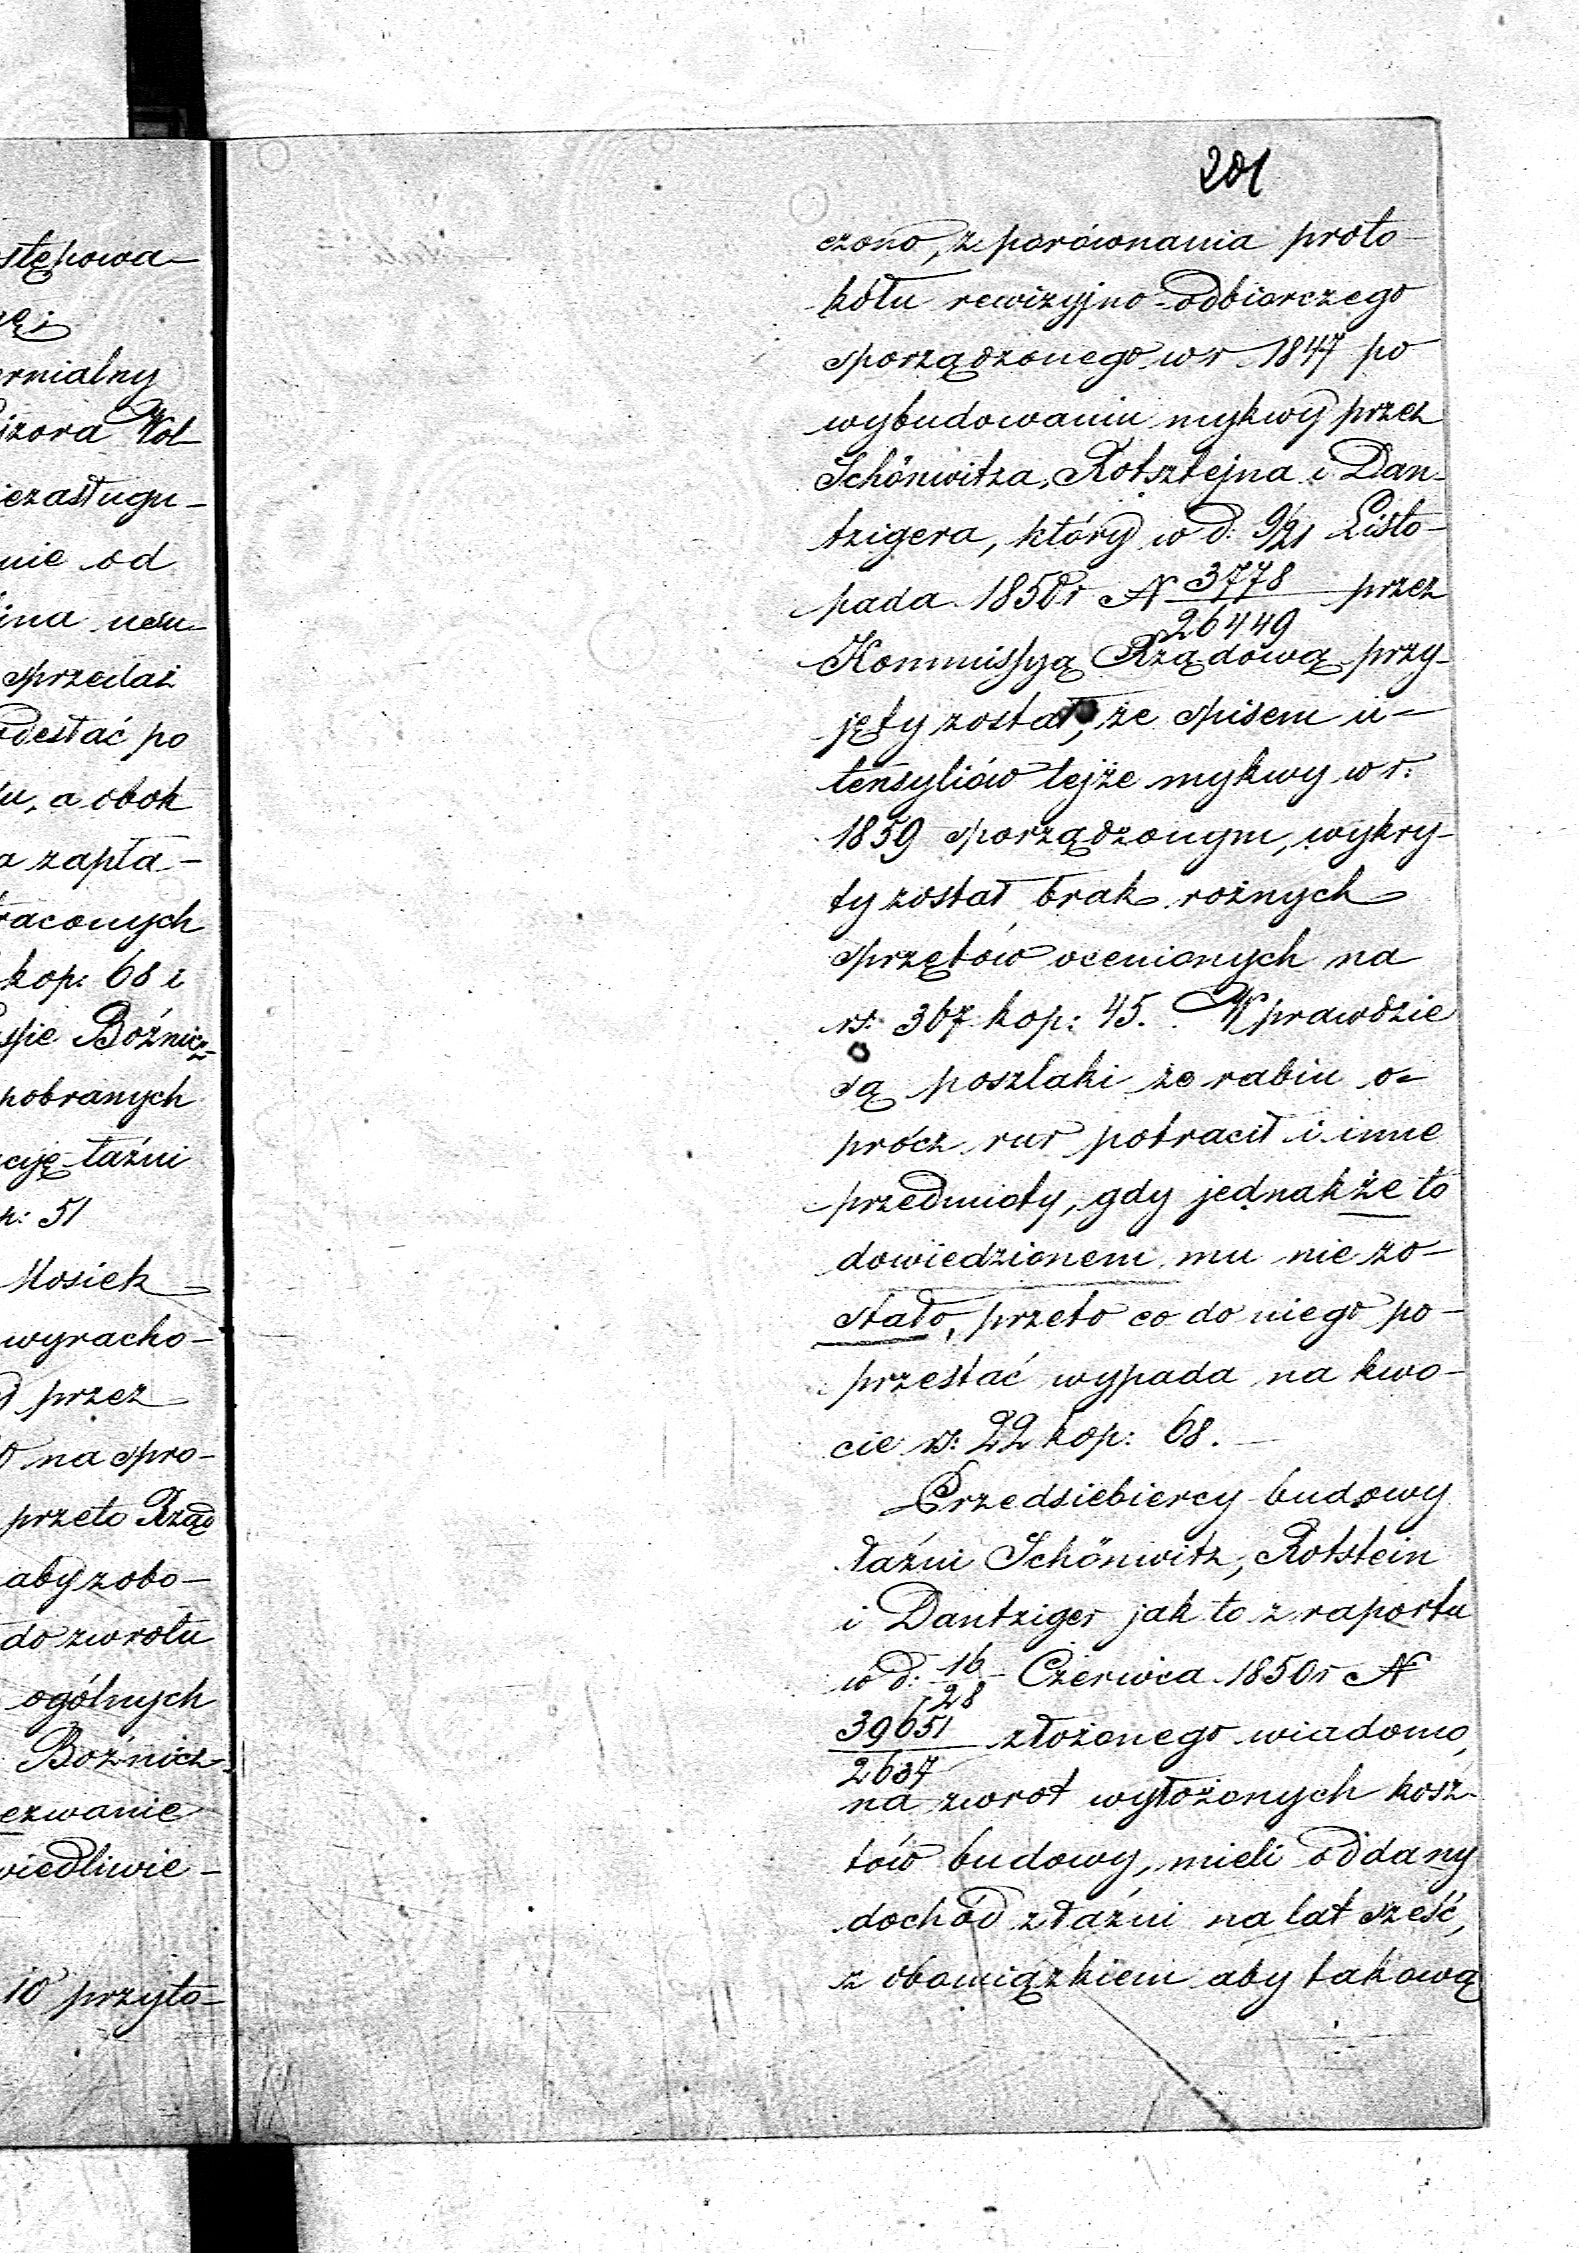 stępowa-
ernialny
izora Wol
iezasługu-
nie od
ina usu-
sprzedaż
odesłać po
u, a obok
a zapła-
raconych
kop: 68 i
ssie Boźnicz-
pobranych
ciję łaźni
p: 51
Mosiek
wyracho-
przez
na spro-
przeto Rząd
aby zobo-
do zwrotu
ogólnych
Boźnicz-
ezwanie
wiedliwie-
10 przyto-
201
czono, z porównania proto-
kółu rewizyjno-odbiorczego
sporządzonego w r 1847 po
wybudowaniu mykwy przez
Schönwitza, Rotsztejna i Dan-
tzigera, który w d: 9/21 Listo-
pada 1850 r N 3778/26449 przez
Kommissyą Rządową przy-
jęty został, ze spisem u-
tensyliów tejże mykwy w r:
1859 sporządzonym, wykry-
ty został brak rożnych
sprzętów ocenionych na
rs: 367 kop: 45. Wprawdzie
są poszlaki że rabin o-
prócz rur potracił i inne
przedmioty, gdy jednakże to
dowiedzionem mu nie zo-
stało, przeto co do niego po-
przestać wypada na kwo-
cie rs: 22 kop: 68.
Przedsiebiercy budowy
łaźni Schönwitz, Rotstein
i Dantziger jak to z raportu
w d: 16/28 Czerwca 1850 r N
39651/2637 złożonego wiadomo,
na zwrot wyłożonych kosz-
tów budowy, mieli oddany
dochód z łaźni na lat sześć,
z obowiązkiem aby takową